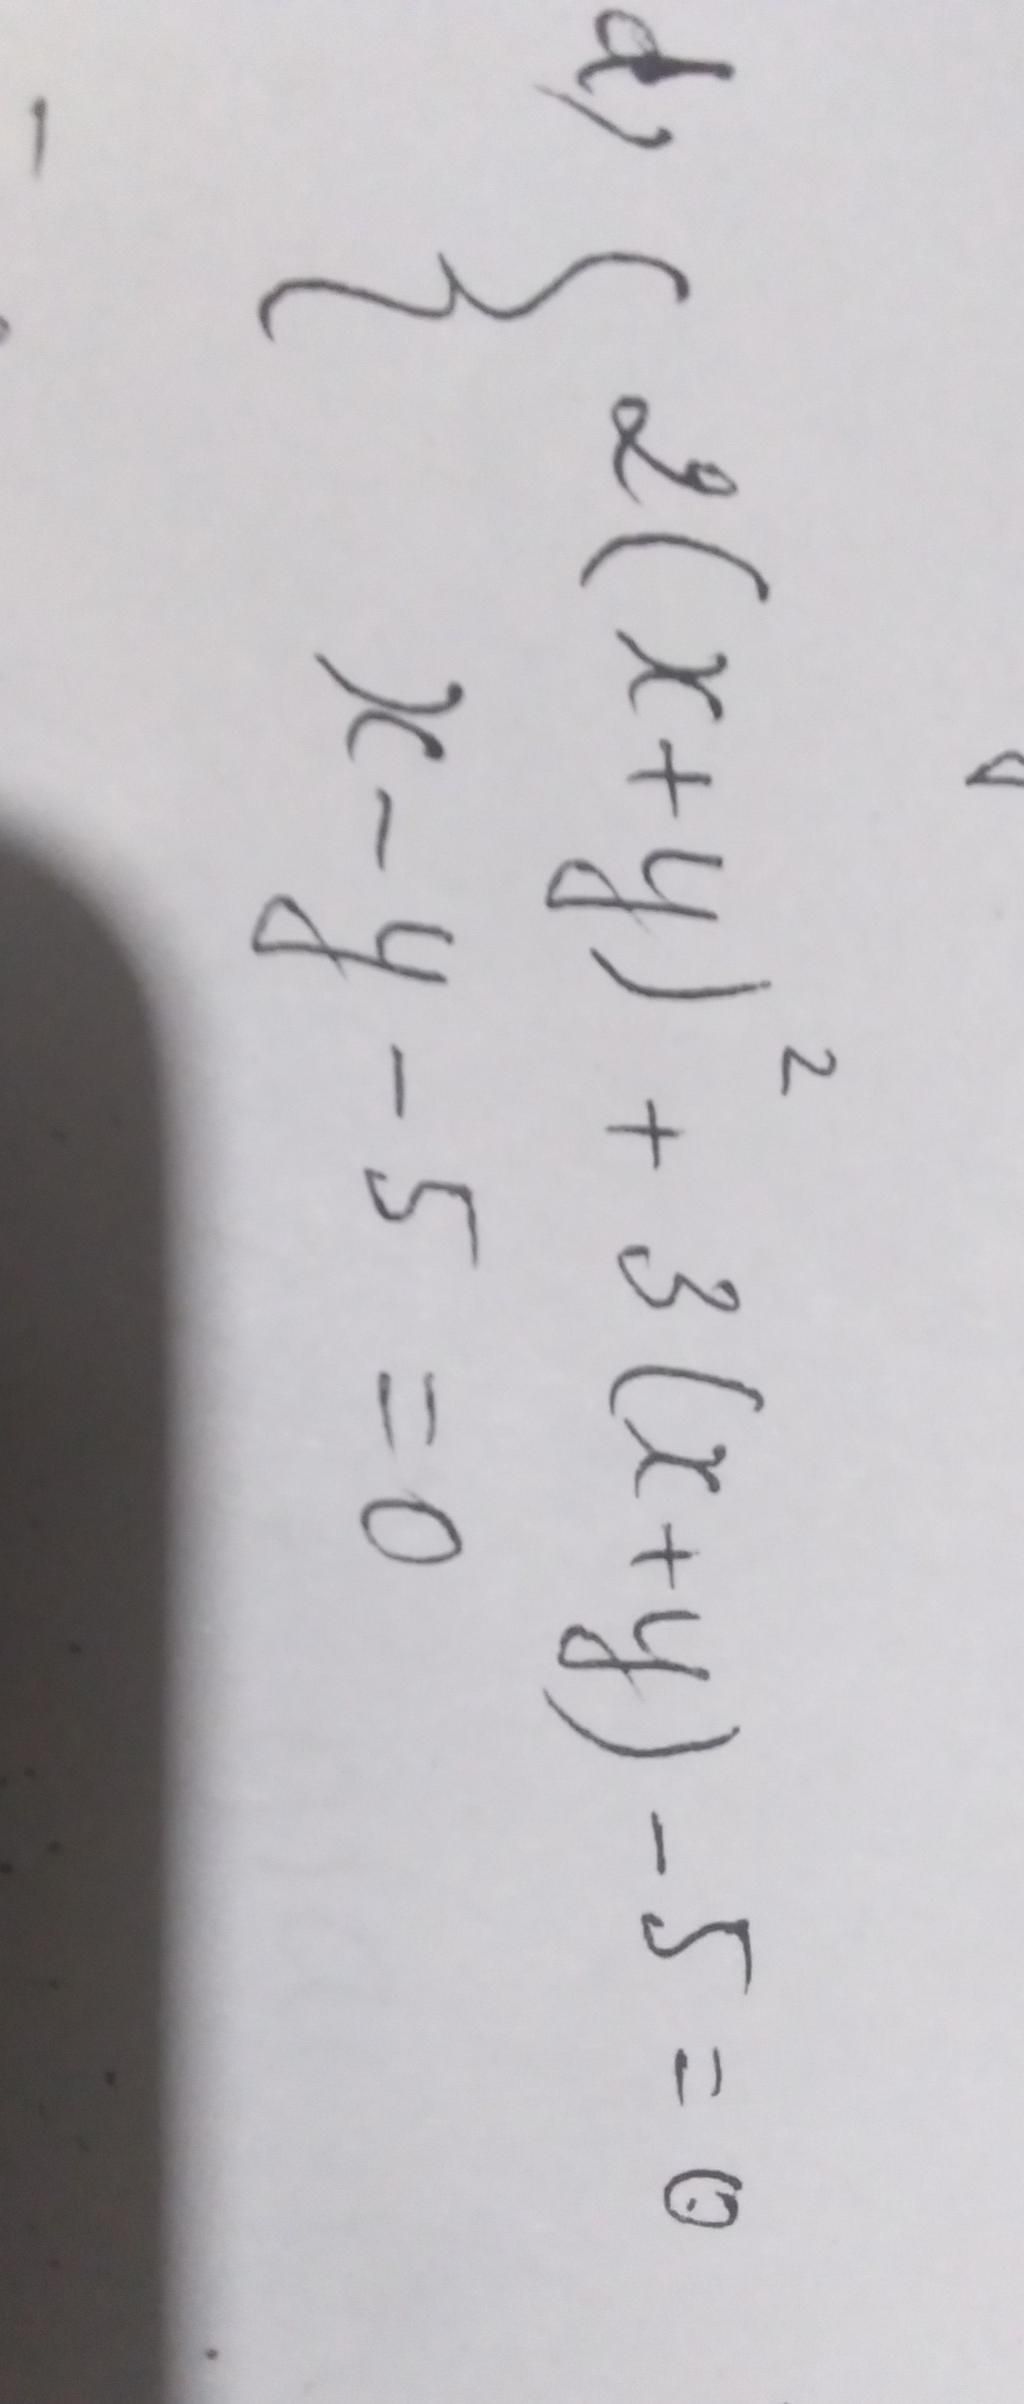 d) { 2(x+y)² + 3(x+y) - 5 = 0
x - y - 5 = 0